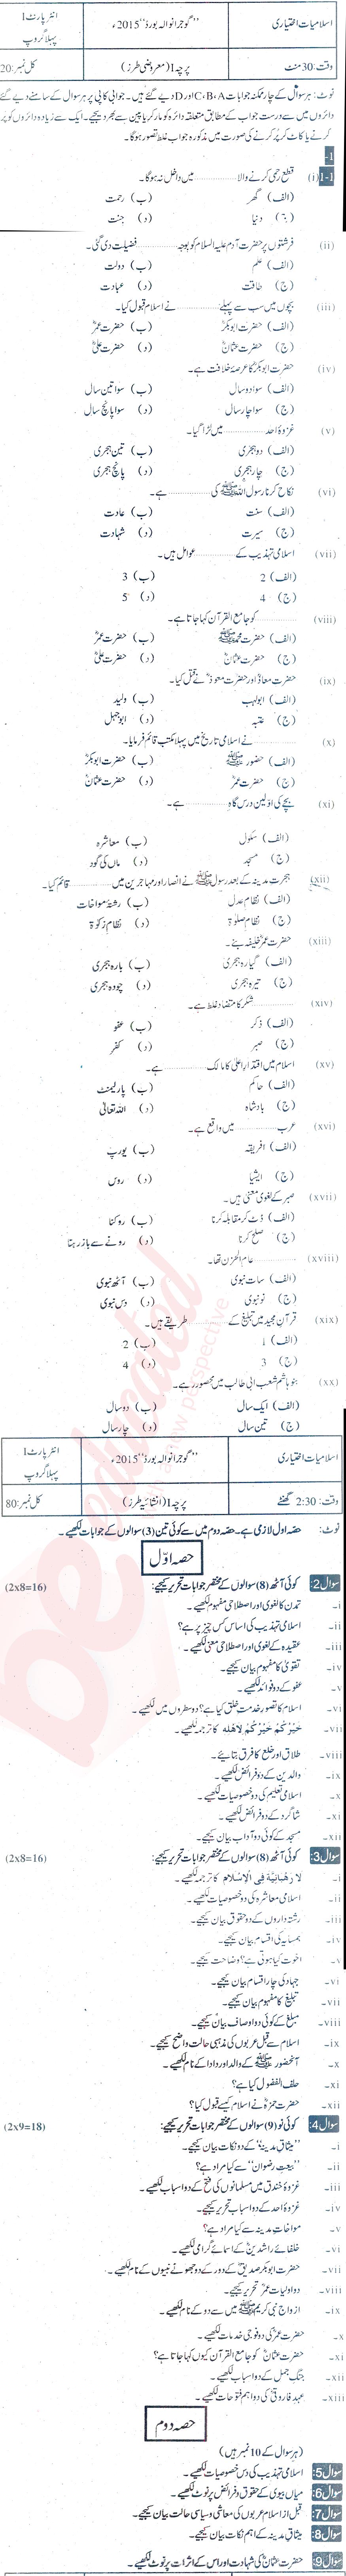 اسلامیات اختیاری ''گوجرانوالہ بورڈ'' 2015ء انٹر پارٹ I پہلا گروپ
وقت: 30 منٹ پرچہ I (معروضی طرز) کل نمبر: 20
نوٹ: ہر سوال کے چار ممکنہ جوابات C،B،A اور D دیے گئے ہیں۔ جوابی کاپی پر ہر سوال کے سامنے دیے گئے
دائروں میں سے درست جواب کے مطابق متعلقہ دائرہ کو مارکر یا پین سے بھر دیجیے۔ ایک سے زیادہ دائروں کو پُر
کرنے یا کاٹ کر پُر کرنے کی صورت میں مذکورہ جواب غلط تصور ہوگا۔
-1
1-1 (i) قطع رحمی کرنے والا ............ میں داخل نہ ہوگا۔
(الف) گھر (ب) رحمت
(ج) دنیا (د) جنت
(ii) فرشتوں پر حضرت آدم علیہ السلام کو بوجہ ............ فضیلت دی گئی۔
(الف) علم (ب) دولت
(ج) طاقت (د) عبادت
(iii) بچوں میں سب سے پہلے ............ نے اسلام قبول کیا۔
(الف) حضرت ابوبکرؓ (ب) حضرت عمرؓ
(ج) حضرت عثمانؓ (د) حضرت علیؓ
(iv) حضرت ابوبکرؓ کا عرصۂ خلافت ہے۔
(الف) سوا دو سال (ب) سوا تین سال
(ج) سوا چار سال (د) سوا پانچ سال
(v) غزوۂ احد ............ میں لڑا گیا۔
(الف) دو ہجری (ب) تین ہجری
(ج) چار ہجری (د) پانچ ہجری
(vi) نکاح کرنا رسول اللہ ﷺ کی ............ ہے۔
(الف) سنت (ب) عادت
(ج) سیرت (د) شہادت
(vii) اسلامی تہذیب کے ............ عوامل ہیں۔
(الف) 2 (ب) 3
(ج) 4 (د) 5
(viii) ............ کو جامع القرآن کہا جاتا ہے۔
(الف) حضرت محمد ﷺ (ب) حضرت عمرؓ
(ج) حضرت عثمانؓ (د) حضرت علیؓ
(ix) حضرت معاذؓ اور حضرت معوذؓ نے قتل کیا۔
(الف) ابولہب (ب) ولید
(ج) عتبہ (د) ابوجہل
(x) ............ نے اسلامی تاریخ میں پہلا مکتب قائم فرمایا۔
(الف) حضور ﷺ (ب) حضرت ابوبکرؓ
(ج) حضرت عمرؓ (د) حضرت عثمانؓ
(xi) بچے کی اولین درس گاہ ............ ہے۔
(الف) سکول (ب) معاشرہ
(ج) مسجد (د) ماں کی گود
(xii) ہجرت مدینہ کے بعد رسول ﷺ نے انصار اور مہاجرین میں ............ قائم کیا۔
(الف) نظام عدل (ب) رشتۂ مواخات
(ج) نظام صلوٰۃ (د) نظام زکوٰۃ
(xiii) حضرت عمرؓ خلیفہ بنے۔
(الف) گیارہ ہجری (ب) بارہ ہجری
(ج) تیرہ ہجری (د) چودہ ہجری
(xiv) ............ شکر کا متضاد لفظ ہے۔
(الف) ذکر (ب) عفو
(ج) صبر (د) کفر
(xv) اسلام میں اقتدار اعلیٰ کا مالک ............ ہے۔
(الف) حاکم (ب) پارلیمنٹ
(ج) بادشاہ (د) اللہ تعالیٰ
(xvi) عرب ............ میں واقع ہے۔
(الف) افریقہ (ب) یورپ
(ج) ایشیا (د) روس
(xvii) صبر کے لغوی معنی ہیں۔
(الف) ڈٹ کر مقابلہ کرنا (ب) روکنا
(ج) صلح کرنا (د) رونے سے باز رہنا
(xviii) ............ عام الحزن تھا۔
(الف) سات نبوی (ب) آٹھ نبوی
(ج) نو نبوی (د) دس نبوی
(xix) قرآن مجید میں تبلیغ کے ............ طریقے ہیں۔
(الف) 1 (ب) 2
(ج) 3 (د) 4
(xx) بنو ہاشم شعب ابی طالب میں محصور رہے۔
(الف) ایک سال (ب) دو سال
(ج) تین سال (د) چار سال
اسلامیات اختیاری ''گوجرانوالہ بورڈ'' 2015ء انٹر پارٹ I پہلا گروپ
وقت: 2:30 گھنٹے پرچہ I (انشائیہ طرز) کل نمبر: 80
نوٹ: حصہ اول لازمی ہے۔ حصہ دوم میں سے کوئی تین (3) سوالوں کے جوابات لکھیے۔
حصہ اوّل
سوال 2: کوئی آٹھ (8) سوالوں کے مختصر جوابات تحریر کیجیے: (2x8=16)
i- تمدن کا لغوی اور اصطلاحی مفہوم لکھیے۔
ii- اسلامی تہذیب کی اساس کس چیز پر ہے؟
iii- عقیدہ کے لغوی اور اصطلاحی معنی لکھیے۔
iv- تقویٰ کا مفہوم بیان کیجیے۔
v- عفو کے دو فوائد لکھیے۔
vi- اسلام کا تصور خدمت خلق کیا ہے؟ دو سطروں میں لکھیے۔
vii- خَيْرُ كُمْ خَيْرُ كُمْ لِاَهْلِهِ کا ترجمہ لکھیے۔
viii- طلاق اور خلع کا فرق بتائیے۔
ix- والدین کے دو فرائض لکھیے۔
x- اسلامی تعلیم کی دو خصوصیات لکھیے۔
xi- شاگرد کے دو فرائض لکھیے۔
xii- مسجد کے کوئی دو آداب بیان کیجیے۔
سوال 3: کوئی آٹھ (8) سوالوں کے مختصر جوابات تحریر کیجیے: (2x8=16)
i- لَا رَهْبَانِيَّةَ فِى الْاِسْلَام کا ترجمہ لکھیے۔
ii- اسلامی معاشرہ کی دو خصوصیات لکھیے۔
iii- رشتہ داروں کے دو حقوق بیان کیجیے۔
iv- ہمسایہ کی اقسام بیان کیجیے۔
v- اخوت کیا ہوتی ہے؟ وضاحت کیجیے۔
vi- جہاد کی چار اقسام بیان کیجیے۔
vii- تبلیغ کا مفہوم بیان کیجیے۔
viii- مبلغ کے کوئی دو اوصاف بیان کیجیے۔
ix- اسلام سے قبل عربوں کی مذہبی حالت واضح کیجیے۔
x- آنحضور ﷺ کے والد اور دادا کے نام لکھیے۔
xi- حلف الفضول کیا ہے؟
xii- حضرت حمزہؓ نے اسلام کیسے قبول کیا؟
سوال 4: کوئی نو (9) سوالوں کے مختصر جوابات تحریر کیجیے: (2x9=18)
i- ''میثاق مدینہ'' کے دو نکات بیان کیجیے۔
ii- ''بیعت رضوان'' سے کیا مراد ہے؟
iii- غزوۂ خندق میں مسلمانوں کی فتح کے دو اسباب لکھیے۔
iv- غزوۂ احد کے دو اسباب تحریر کیجیے۔
v- مواخات مدینہ سے کیا مراد ہے؟
vi- خلفائے راشدینؓ کے اسمائے گرامی لکھیے۔
vii- حضرت ابوبکر صدیقؓ کے دور کے دو جھوٹے نبیوں کے نام لکھیے۔
viii- دو اولیات عمرؓ تحریر کیجیے۔
ix- ازواج نبی کریم ﷺ میں سے دو کے نام لکھیے۔
x- حضرت عمرؓ کی دو فوجی خدمات لکھیے۔
xi- حضرت عثمانؓ کو جامع القرآن کیوں کہا جاتا ہے؟
xii- جنگ جمل کے دو اسباب لکھیے۔
xiii- عہد فاروقیؓ کی دو اہم فتوحات لکھیے۔
حصہ دوم
(ہر سوال کے 10 نمبر ہیں)
سوال 5: اسلامی تہذیب کی دس خصوصیات لکھیے۔
سوال 6: میاں بیوی کے حقوق و فرائض پر نوٹ لکھیے۔
سوال 7: قبل از اسلام عربوں کی معاشی و سیاسی حالت بیان کیجیے۔
سوال 8: میثاق مدینہ کے اہم نکات بیان کیجیے۔
سوال 9: حضرت عثمانؓ کی شہادت اور اس کے اثرات پر نوٹ لکھیے۔